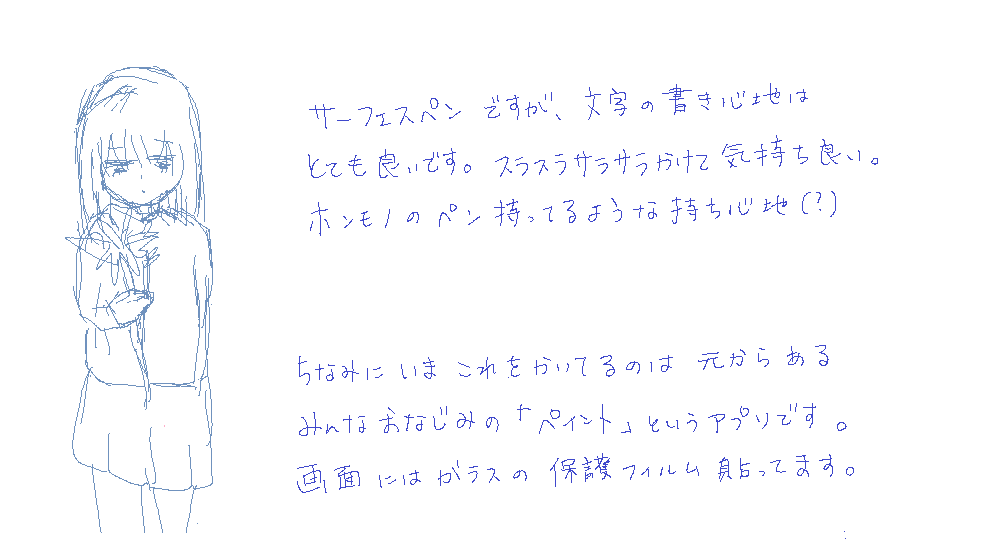 サーフェスペンですが、文字の書き心地は
とても良いです。スラスラサラサラかけて気持ち良い。
ホンモノのペン持ってるような持ち心地(?)
ちなみにいまこれをかいてるのは元からある
みんなおなじみの「ペイント」というアプリです。
画面にはガラスの保護フィルム貼ってます。